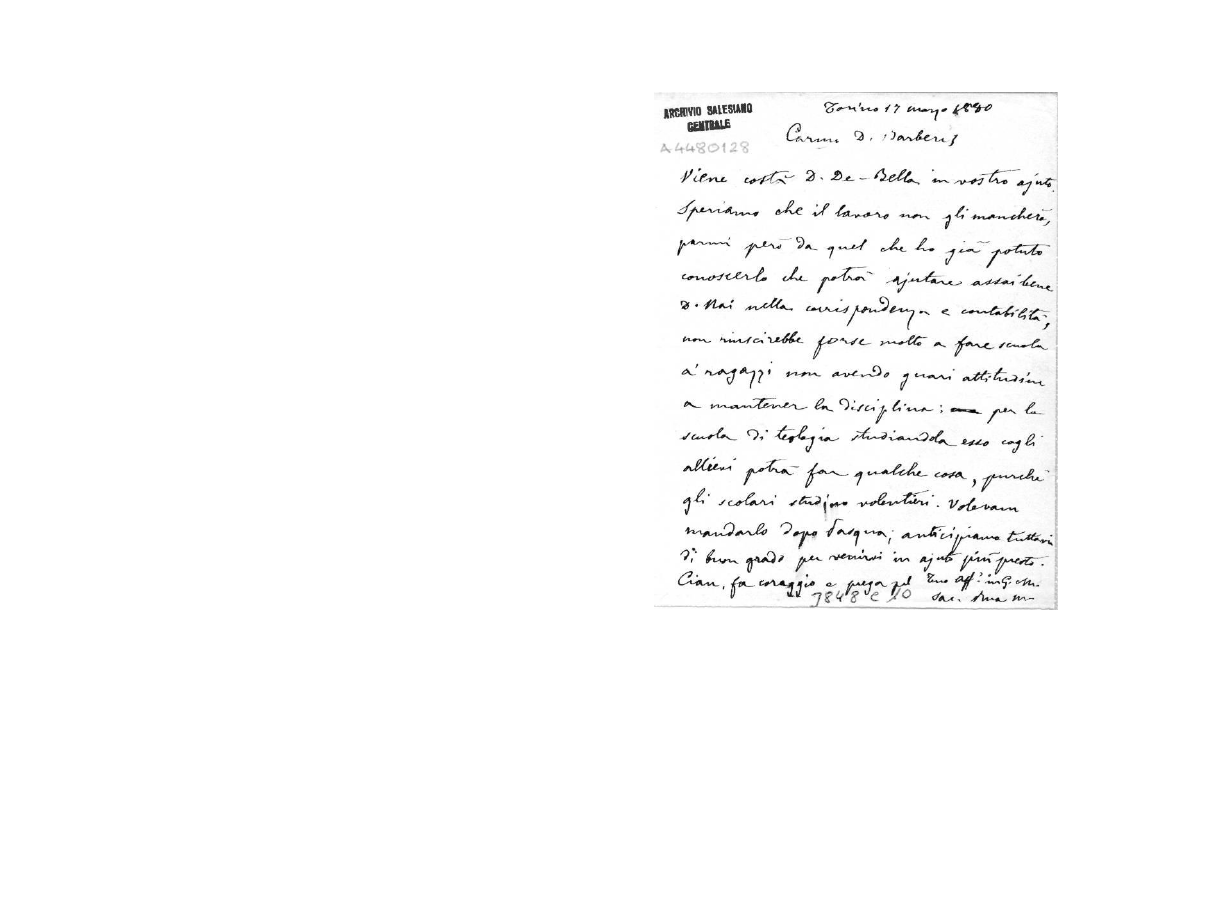 ARCHIVIO SALESIANO
CENTRALE
A4480128
Torino 17 marzo 1880
Carmo D. Barberis
Viene costà D. De-Bella in vostro ajuto.
Speriamo che il lavoro non gli mancherà,
parmi però da quel che ho già potuto
conoscerlo che potrà ajutare assai bene
D. Nai nella corrispondenza e contabilità,
non riuscirebbe forse molto a fare scuola
a' ragazzi non avendo guari attitudine
a mantener la disciplina; per la
scuola di teologia studiandola esso cogli
allievi potrà far qualche cosa, purchè
gli scolari studino volentieri. Volevam
mandarlo dopo Pasqua; anticipiamo tuttavia
di buon grado per venirvi in ajuto più presto.
Ciau, fa coraggio e prega pel Tuo Aff. in G. e M.
3848 C 10 Sac.